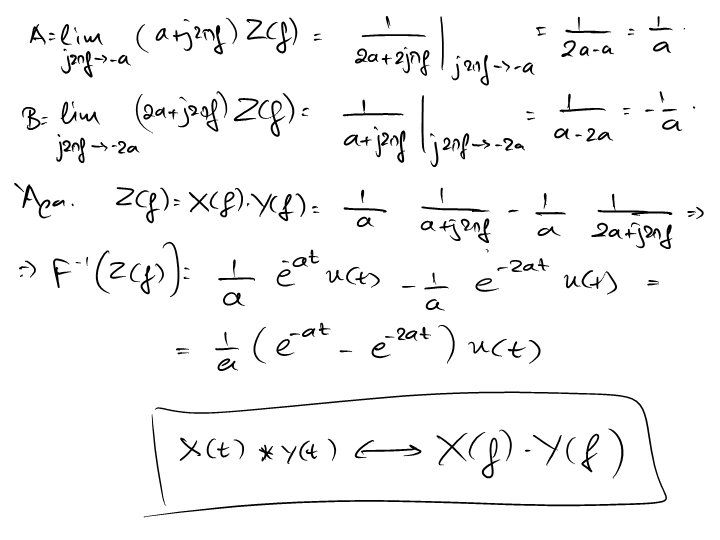 A = lim (a+j2πf) Z(f) = 1/(2a+2jπf) | j2πf→-a = 1/(2a-a) = 1/a .
j2πf→-a
B = lim (2a+j2πf) Z(f) = 1/(a+j2πf) | j2πf→-2a = 1/(a-2a) = -1/a .
j2πf→-2a
Άρα. Z(f) = X(f)·Y(f) = 1/a 1/(a+j2πf) - 1/a 1/(2a+j2πf) ⇒
⇒ F⁻¹(Z(f)) = 1/a e^{-at} u(t) - 1/a e^{-2at} u(t) =
= 1/a (e^{-at} - e^{-2at}) u(t)
x(t) * y(t) ⟷ X(f)·Y(f)